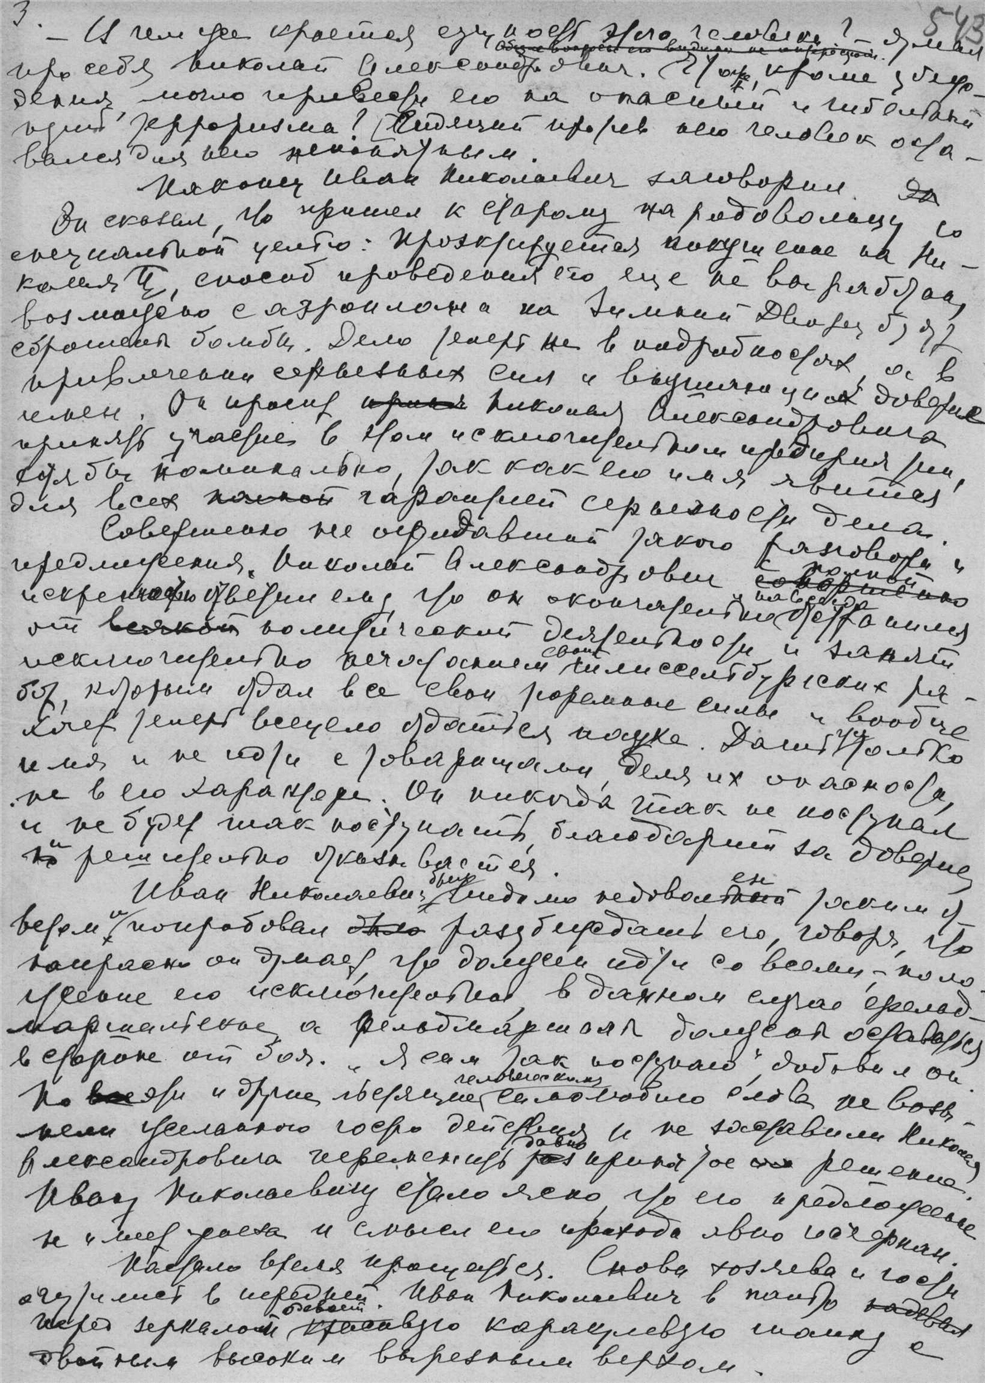 3.
543
— И в чем же кроется сущность этого человека? — думал
про себя Николай Александрович. Что, кроме убеж-
дения, могло привести его на опасный и гибельный
путь терроризма? Сидящий против него человек оста-
вался для него непонятным.
Наконец Иван Николаевич заговорил
Он сказал, что пришел к старому народовольцу со
специальной целью: проэктируется покушение на Ни-
колая II, способ проведения его еще не выработан,
возможно с аэроплана на Зимний Дворец будут
сброшены бомбы. Дело теперь не в подробностях, а в
привлечении серьезных сил и внушающих доверие
имен. Он просит Николая Александровича
принять участие в этом исключительном предприятии,
хотя бы номинально, так как его имя явится
для всех гарантией серьезности дела.
Совершенно не ожидавший такого разговора и
предложения, Николай Александрович с полной
искренностью ответил ему, что он окончательно и навсегда отстранился
от всякой политической деятельности и занят
исключительно печатанием своих шлиссельбургских ра-
бот, которым отдал все свои тюремные силы и вообще
хочет теперь всецело отдаться науке. Дать же только
имя и не идти с товарищами, деля их опасности,
не в его характере. Он никогда так не поступал
и не будет так поступать, благодарит за доверие,
и решительно отказывается.
Иван Николаевич был видимо недоволен таким от-
ветом и попробовал разубеждать его, говоря, что
напрасно он думает, что должен идти со всеми, — поло-
жение его исключительное, в данном случае фельд-
маршальское, а фельдмаршал должен оставаться
в стороне от боя. „Я сам так поступаю", добавил он.
Но эти и другие льстящие человеческому самолюбию слова не возы-
мели желанного гостю действия и не заставили Николая
Александровича переменить давно принятое решение.
Ивану Николаевичу стало ясно, что его предложение
не имеет успеха и смысл его прихода явно исчерпан.
Настало время прощаться. Снова хозяева и гости
очутились в передней. Иван Николаевич в пальто
перед зеркалом одевает красивую каракулевую шапку с
двойным высоким вырезным верхом.